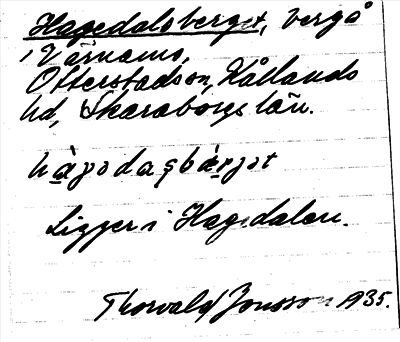 Hagedalsberget, berg å
i Värnamo,
Otterstadson, Kållands
hd, Skaraborgs län.
hàgedasbàrjət
Ligger i Hagedalen.
Thorvald Jonsson 1935.